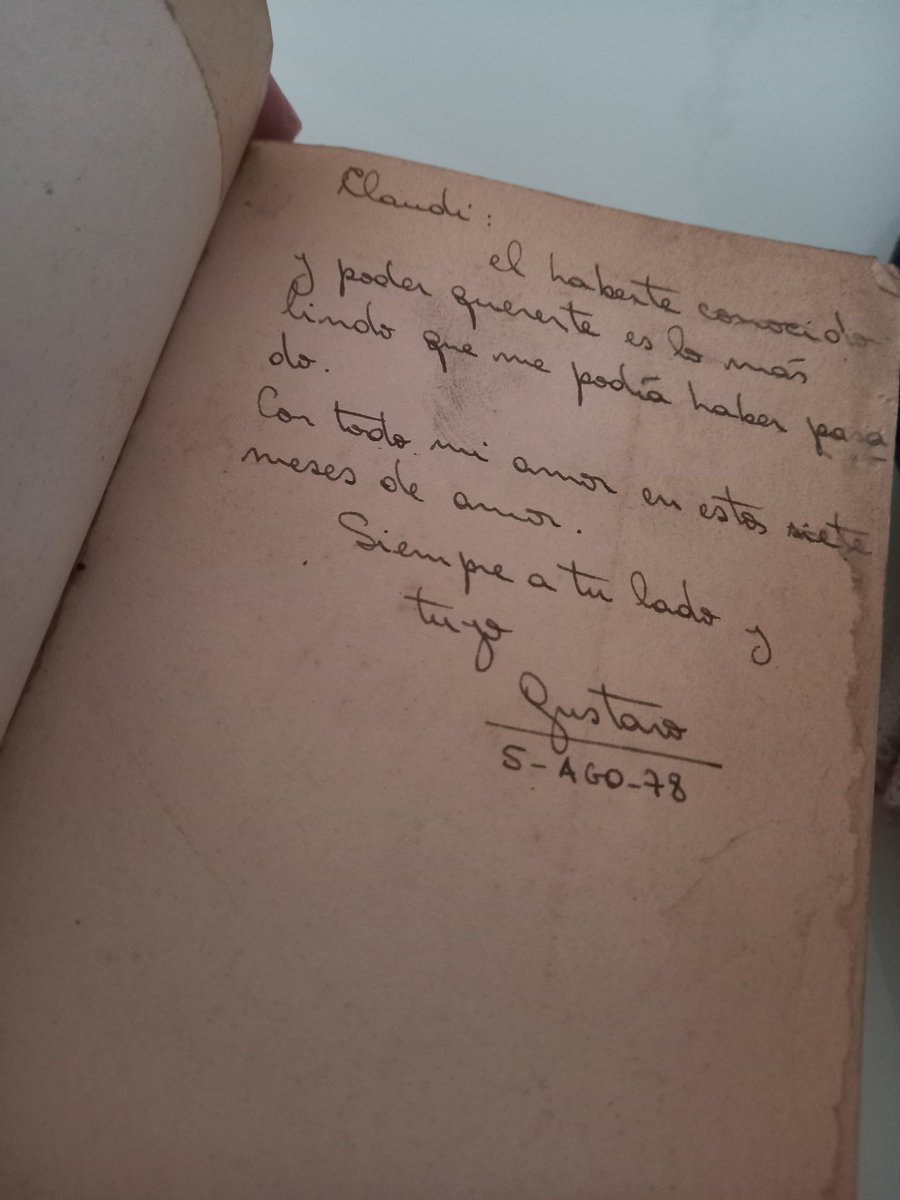 Claudi:
el haberte conocido
y poder quererte es lo más
lindo que me podía haber pasa
do.
Con todo mi amor en estos siete
meses de amor.
Siempre a tu lado y
tuyo
Gustavo
5-AGO-78